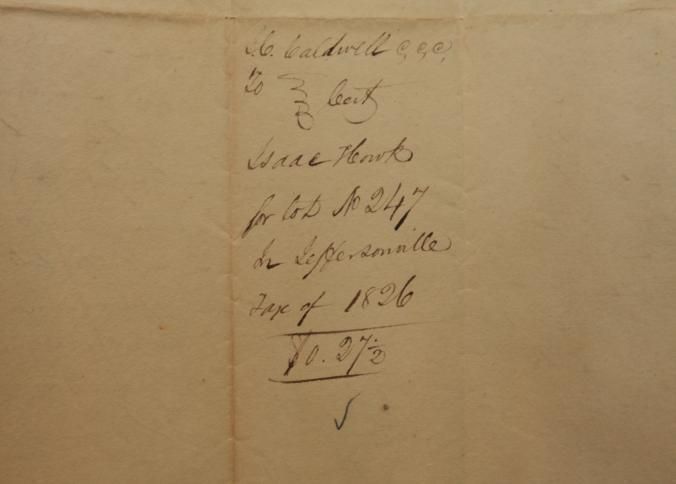 J.C. Caldwell C.C.C.
To } Cert
Isaac Howk
for lot No 247
In Jeffersonville
Tax of 1826
$0.27 1/2
5